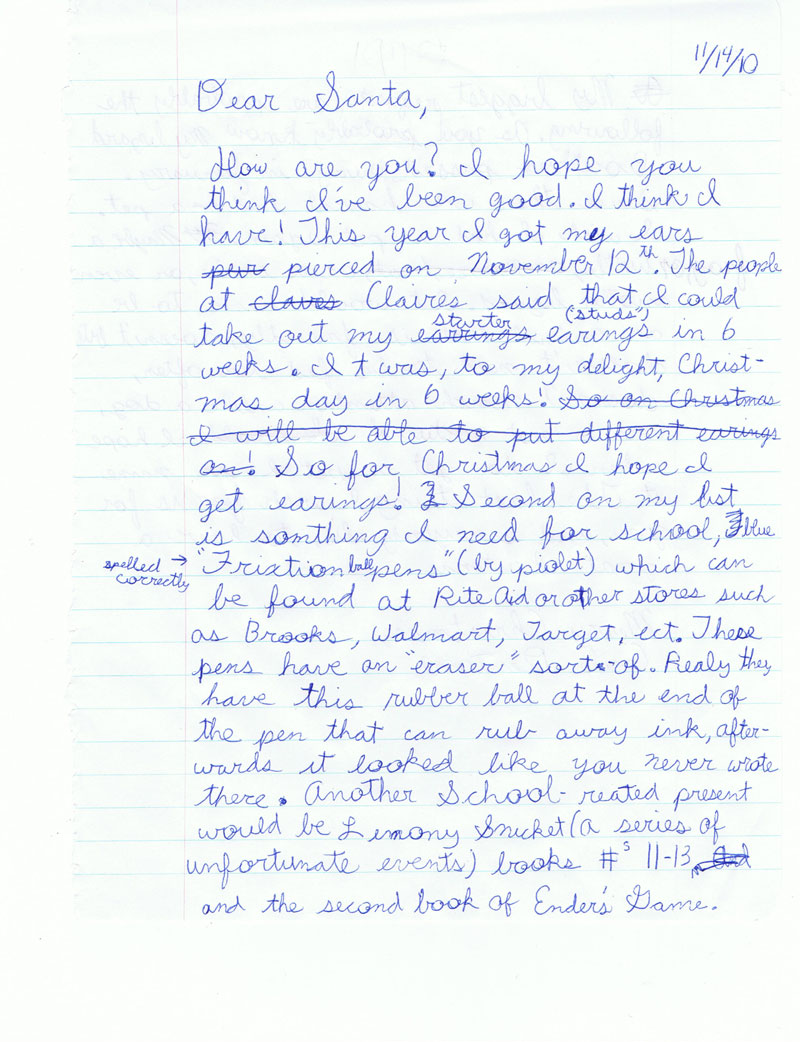 11/14/10
Dear Santa,
How are you? I hope you
think I've been good. I think I
have! This year I got my ears
peir pierced on November 12th. The people
at claires Claires said that I could
starter ("studs")
take out my earrings earings in 6
weeks. I t was, to my delight, Christ-
mas day in 6 weeks! So on Christmas
I will be able to put different earings
on! So for Christmas I hope I
get earings! Second on my list
is somthing I need for school, blue
spelled → "Frixtion ball pens" (by piolet) which can
correctly
be found at Rite Aid or other stores such
as Brooks, Walmart, Target, ect. These
pens have an "eraser" sort-of. Realy they
have this rubber ball at the end of
the pen that can rub away ink, after-
wards it looked like you never wrote
there. Another School-reated present
would be Lemony Snicket (a series of
unfortunate events) books #s 11-13, And
and the second book of Ender's Game.